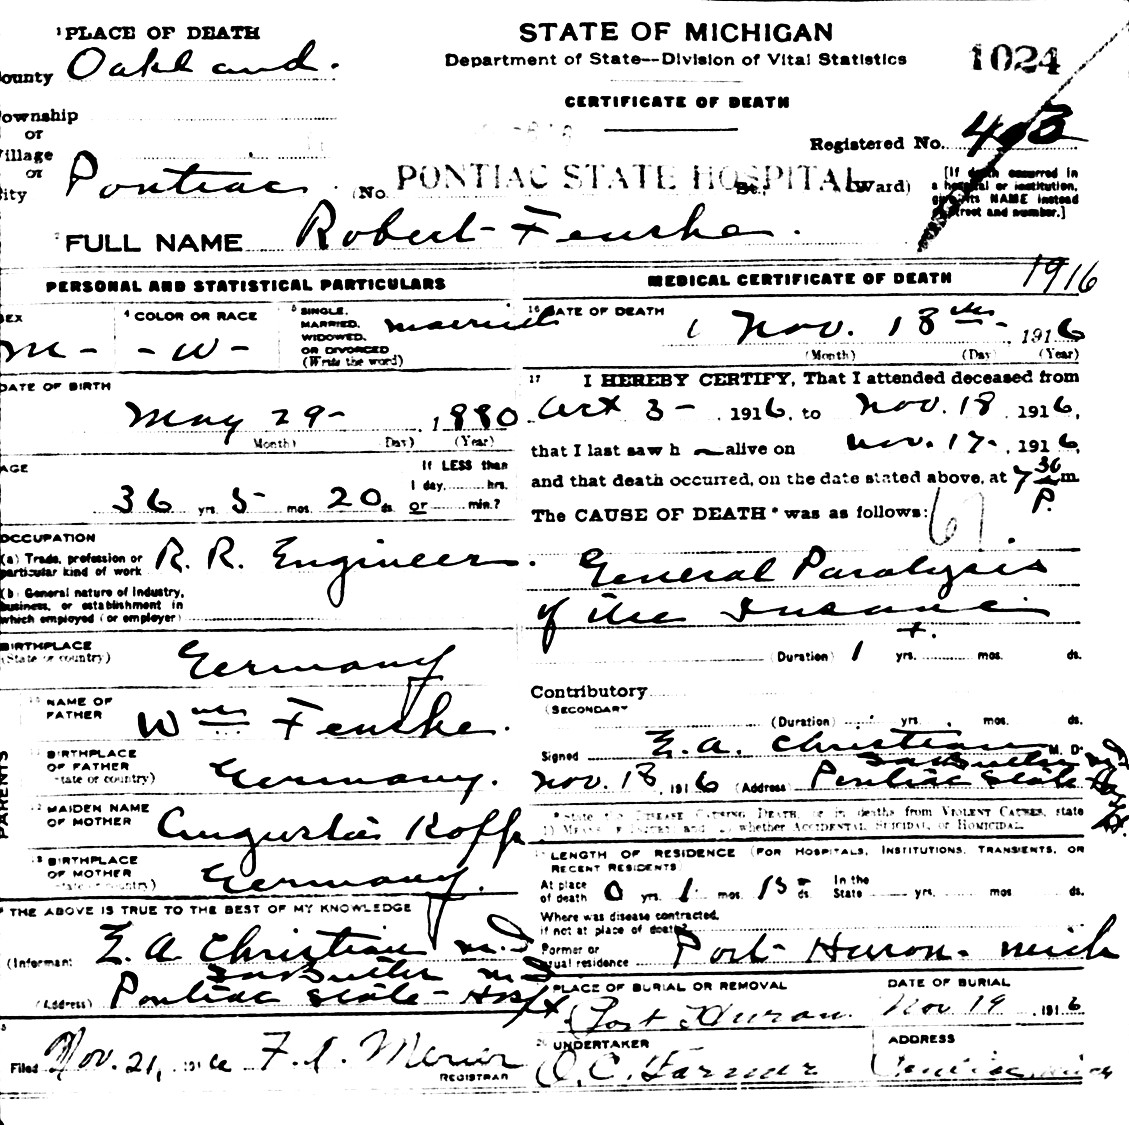 ¹PLACE OF DEATH
STATE OF MICHIGAN
Department of State—Division of Vital Statistics
1024
County Oakland.
CERTIFICATE OF DEATH
Township
or
Village
or
City Pontiac (No. PONTIAC STATE HOSPITAL St., Ward)
Registered No. 403
[If death occurred in
a hospital or institution,
give its NAME instead
of street and number.]
² FULL NAME Robert Fenske.
PERSONAL AND STATISTICAL PARTICULARS
SEX
M -
⁴ COLOR OR RACE
- W -
⁵ SINGLE,
MARRIED,
WIDOWED,
OR DIVORCED
(Write the word)
married
DATE OF BIRTH
May 29 - , 1880
(Month) (Day) (Year)
AGE
If LESS than
1 day, hrs.
36 yrs. 5 - mos. 20 ds. or min.?
OCCUPATION
(a) Trade, profession or
particular kind of work R. R. Engineer.
(b) General nature of Industry,
business, or establishment in
which employed (or employer)
BIRTHPLACE
(State or country) Germany
NAME OF
FATHER Wm Fenske.
BIRTHPLACE
OF FATHER
(state or country) Germany.
MAIDEN NAME
OF MOTHER Augusta
BIRTHPLACE
OF MOTHER
(state or country) Germany.
PARENTS
THE ABOVE IS TRUE TO THE BEST OF MY KNOWLEDGE
(Informant E. A. Christian M.D
(Address) Pontiac State - Hospt
Filed Nov. 21, 1916
REGISTRAR
MEDICAL CERTIFICATE OF DEATH
1916
¹⁶ DATE OF DEATH
Nov. 18th - 1916
(Month) (Day) (Year)
¹⁷ I HEREBY CERTIFY, That I attended deceased from
Oct 3 - , 1916, to Nov. 18 1916,
that I last saw h alive on Nov. 17 - , 1916,
and that death occurred, on the date stated above, at 7 30 P. m.
The CAUSE OF DEATH * was as follows: 67
General Paralysis
of the Insane
(Duration) 1 + yrs. mos. ds.
Contributory
(SECONDARY)
(Duration) yrs. mos. ds.
Signed E. A. Christian M. D.
Nov. 18, 1916 (Address) Pontiac State Hospt.
* State the DISEASE CAUSING DEATH, or in deaths from VIOLENT CAUSES, state
(1) MEANS OF INJURY; and (2) whether ACCIDENTAL, SUICIDAL, or HOMICIDAL.
LENGTH OF RESIDENCE (FOR HOSPITALS, INSTITUTIONS, TRANSIENTS, OR
RECENT RESIDENTS)
At place
of death 0 yrs. 1 mos. 15 ds. In the
State yrs. mos. ds.
Where was disease contracted,
if not at place of death?
Former or
usual residence Port Huron. Mich
PLACE OF BURIAL OR REMOVAL
Port Huron.
DATE OF BURIAL
Nov 19 , 1916
UNDERTAKER
O. C. Farmer
ADDRESS
Pontiac, Mich